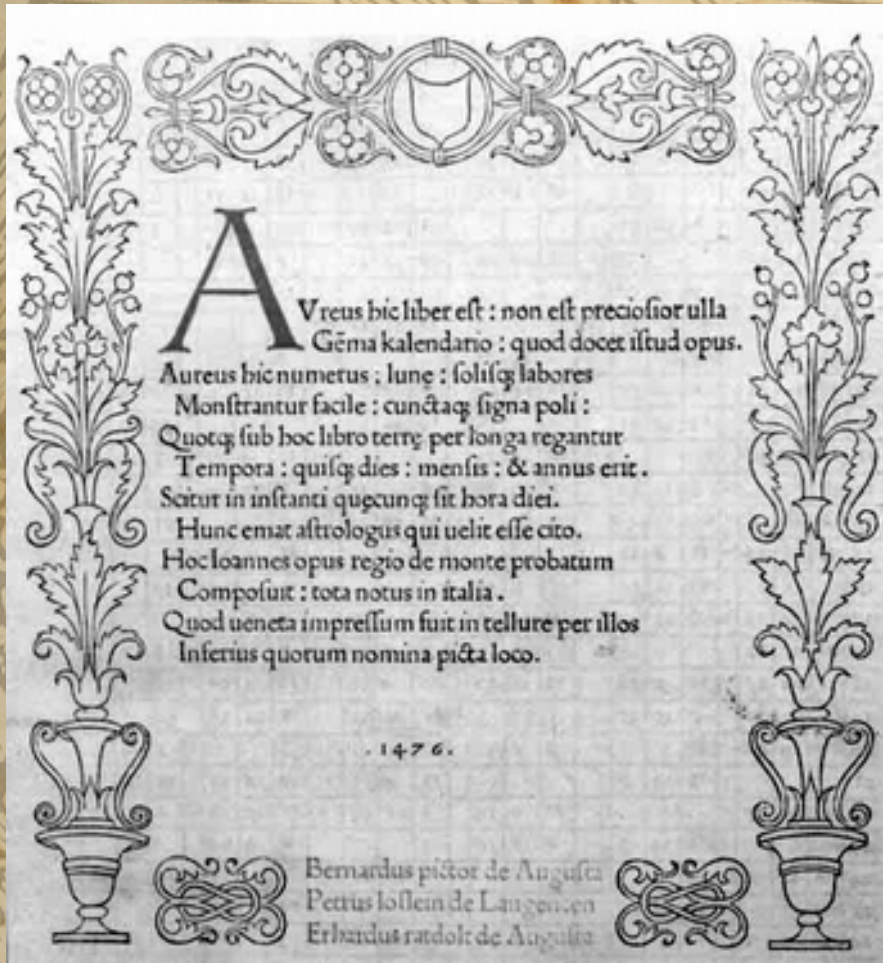 AVreus hic liber eſt : non eſt precioſior ulla
Gēma kalendario : quod docet iſtud opus.
Aureus hic numerus ; lunę : ſoliſqꝫ labores
Monſtrantur facile : cunctaqꝫ ſigna poli :
Quotqꝫ ſub hoc libro terrę per longa regantur
Tempora : quiſqꝫ dies : menſis : & annus erit .
Scitur in inſtanti quęcunqꝫ ſit hora diei.
Hunc emat aſtrologus qui uelit eſſe cito.
Hoc Ioannes opus regio de monte probatum
Compoſuit : tota notus in italia .
Quod ueneta impreſſum fuit in tellure per illos
Inferius quorum nomina picta loco.
. 1476 .
Bernardus pictor de Auguſta
Petrus loſlein de Langencen
Erhardus ratdolt de Auguſta